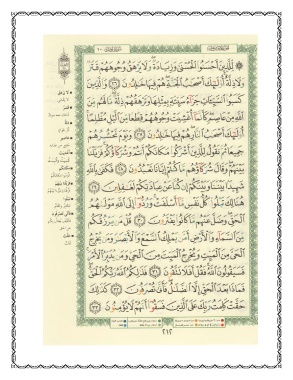 لِّلَّذِينَ أَحْسَنُوا۟ ٱلْحُسْنَىٰ وَزِيَادَةٌ وَلَا يَرْهَقُ وُجُوهَهُمْ قَتَرٌ
وَلَا ذِلَّةٌ أُو۟لَٰٓئِكَ أَصْحَٰبُ ٱلْجَنَّةِ هُمْ فِيهَا خَٰلِدُونَ ٢٦ وَٱلَّذِينَ
كَسَبُوا۟ ٱلسَّيِّـَٔاتِ جَزَآءُ سَيِّئَةٍۭ بِمِثْلِهَا وَتَرْهَقُهُمْ ذِلَّةٌ مَّا لَهُم مِّنَ
ٱللَّهِ مِنْ عَاصِمٍ كَأَنَّمَآ أُغْشِيَتْ وُجُوهُهُمْ قِطَعًا مِّنَ ٱلَّيْلِ مُظْلِمًا
أُو۟لَٰٓئِكَ أَصْحَٰبُ ٱلنَّارِ هُمْ فِيهَا خَٰلِدُونَ ٢٧ وَيَوْمَ نَحْشُرُهُمْ
جَمِيعًا ثُمَّ نَقُولُ لِلَّذِينَ أَشْرَكُوا۟ مَكَانَكُمْ أَنتُمْ وَشُرَكَآؤُكُمْ فَزَيَّلْنَا
بَيْنَهُمْ وَقَالَ شُرَكَآؤُهُم مَّا كُنتُمْ إِيَّانَا تَعْبُدُونَ ٢٨ فَكَفَىٰ بِٱللَّهِ
شَهِيدًۢا بَيْنَنَا وَبَيْنَكُمْ إِن كُنَّا عَنْ عِبَادَتِكُمْ لَغَٰفِلِينَ ٢٩
هُنَالِكَ تَبْلُوا۟ كُلُّ نَفْسٍ مَّآ أَسْلَفَتْ وَرُدُّوٓا۟ إِلَى ٱللَّهِ مَوْلَىٰهُمُ
ٱلْحَقِّ وَضَلَّ عَنْهُم مَّا كَانُوا۟ يَفْتَرُونَ ٣٠ قُلْ مَن يَرْزُقُكُم
مِّنَ ٱلسَّمَآءِ وَٱلْأَرْضِ أَمَّن يَمْلِكُ ٱلسَّمْعَ وَٱلْأَبْصَٰرَ وَمَن يُخْرِجُ
ٱلْحَىَّ مِنَ ٱلْمَيِّتِ وَيُخْرِجُ ٱلْمَيِّتَ مِنَ ٱلْحَىِّ وَمَن يُدَبِّرُ ٱلْأَمْرَ
فَسَيَقُولُونَ ٱللَّهُ فَقُلْ أَفَلَا تَتَّقُونَ ٣١ فَذَٰلِكُمُ ٱللَّهُ رَبُّكُمُ ٱلْحَقُّ
فَمَاذَا بَعْدَ ٱلْحَقِّ إِلَّا ٱلضَّلَٰلُ فَأَنَّىٰ تُصْرَفُونَ ٣٢ كَذَٰلِكَ
حَقَّتْ كَلِمَتُ رَبِّكَ عَلَى ٱلَّذِينَ فَسَقُوٓا۟ أَنَّهُمْ لَا يُؤْمِنُونَ ٣٣
٢١٢